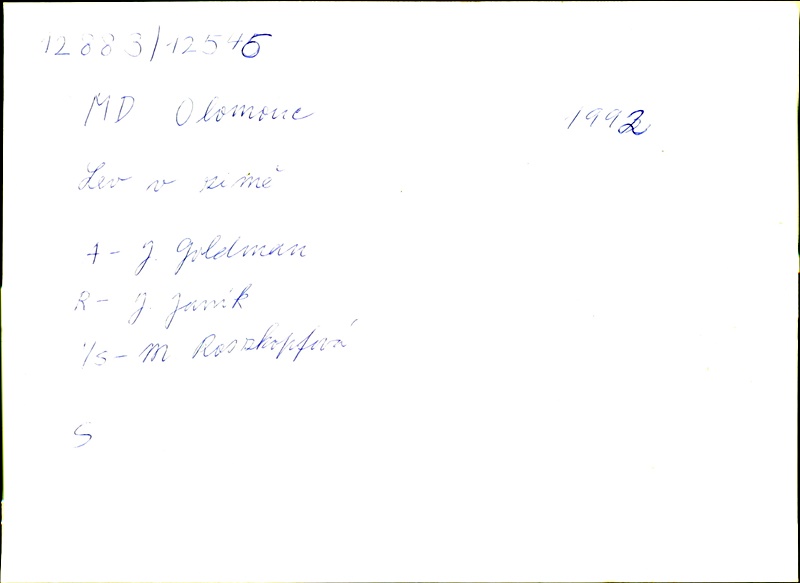 12883/12546
MD Olomouc 1992
Lev v zimě
A- J. Goldman
R- J. Janík
1/s- M Roszkopfová
S